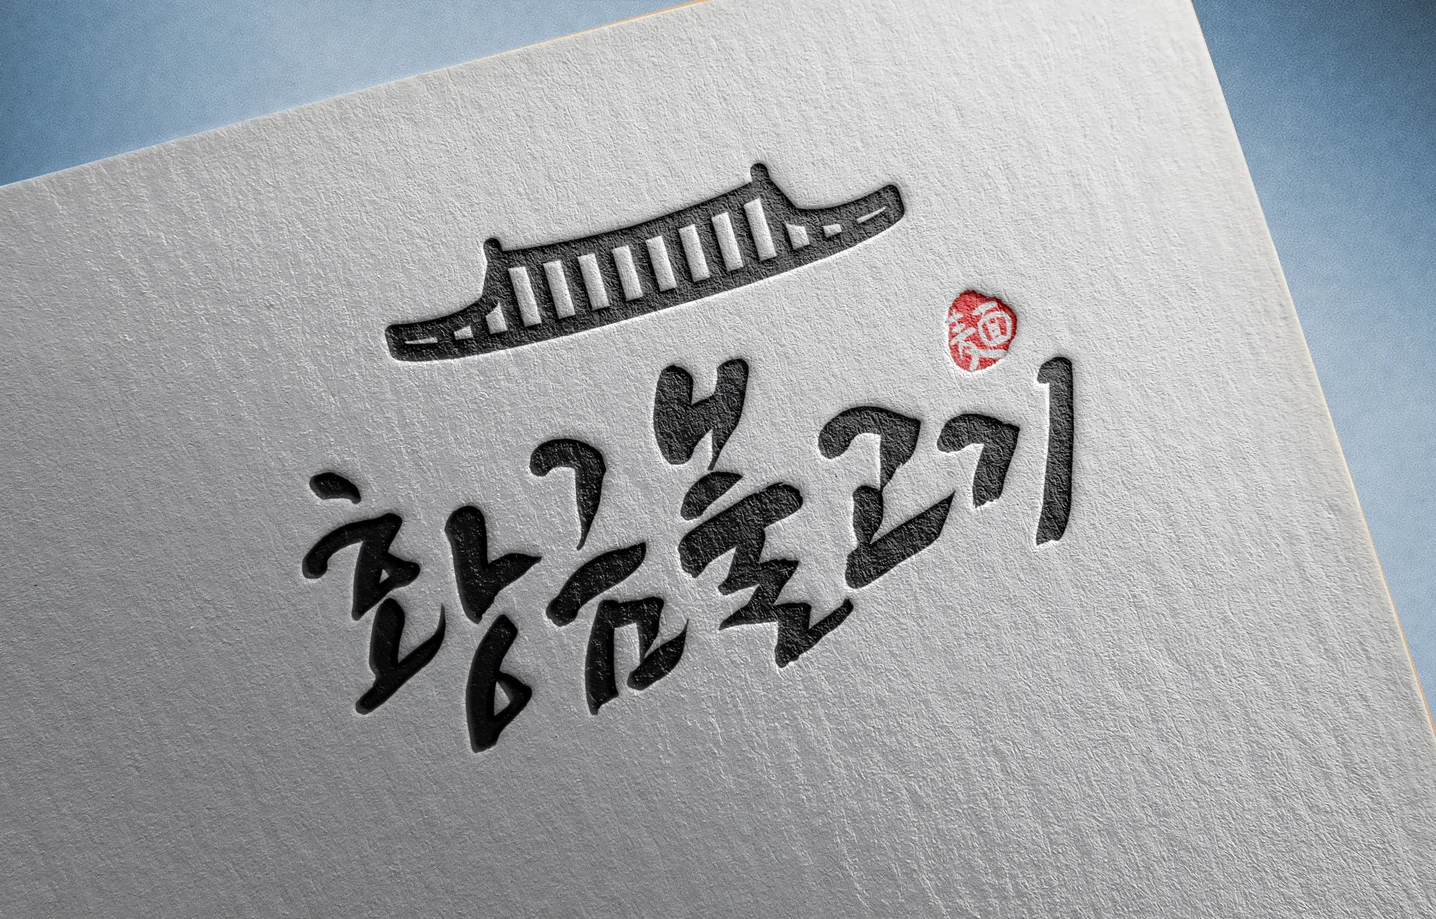 麺
황금불고기